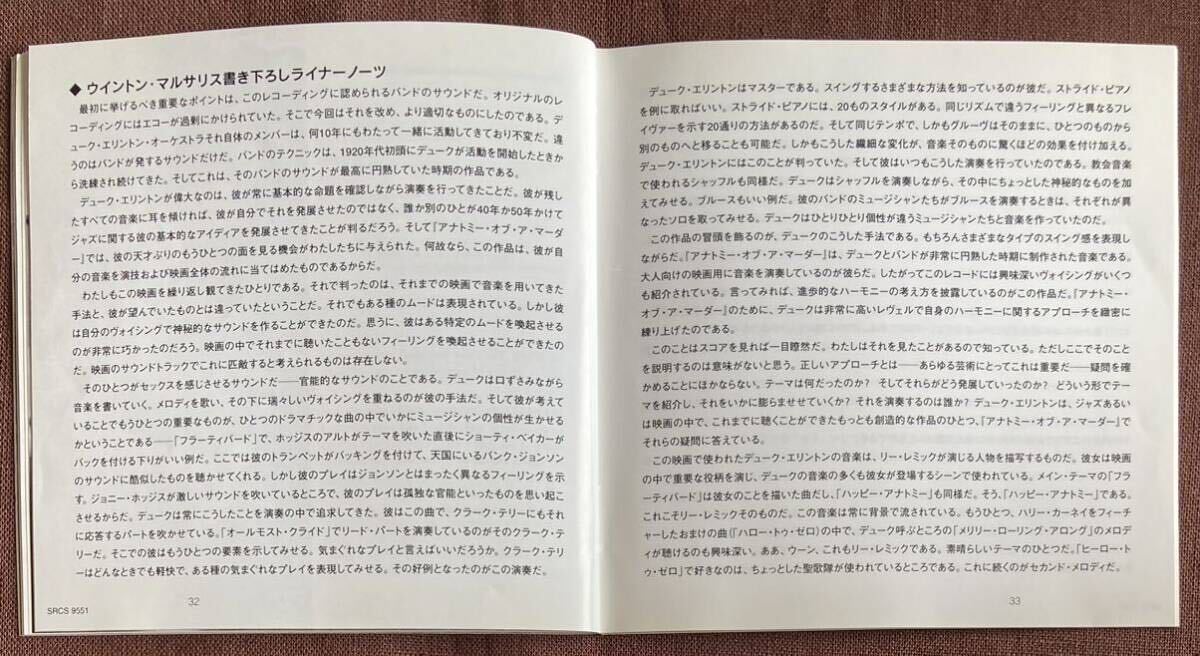 ◆ ウイントン・マルサリス書き下ろしライナーノーツ
最初に挙げるべき重要なポイントは、このレコーディングに認められるバンドのサウンドだ。オリジナルのレ
コーディングにはエコーが過剰にかけられていた。そこで今回はそれを改め、より適切なものにしたのである。デ
ューク・エリントン・オーケストラそれ自体のメンバーは、何10年にもわたって一緒に活動してきており不変だ。違
うのはバンドが発するサウンドだけだ。バンドのテクニックは、1920年代初頭にデュークが活動を開始したときか
ら洗練され続けてきた。そしてこれは、そのバンドのサウンドが最高に円熟していた時期の作品である。
デューク・エリントンが偉大なのは、彼が常に基本的な命題を確認しながら演奏を行ってきたことだ。彼が残し
たすべての音楽に耳を傾ければ、彼が自分でそれを発展させたのではなく、誰か別のひとが40年か50年かけて
ジャズに関する彼の基本的なアイディアを発展させてきたことが判るだろう。そして『アナトミー・オブ・ア・マーダ
ー』では、彼の天才ぶりのもうひとつの面を見る機会がわたしたちに与えられた。何故なら、この作品は、彼が自
分の音楽を演技および映画全体の流れに当てはめたものであるからだ。
わたしもこの映画を繰り返し観てきたひとりである。それで判ったのは、それまでの映画で音楽を用いてきた
手法と、彼が望んでいたものとは違っていたということだ。それでもある種のムードは表現されている。しかし彼
は自分のヴォイシングで神秘的なサウンドを作ることができたのだ。思うに、彼はある特定のムードを喚起させる
のが非常に巧かったのだろう。映画の中でそれまでに聴いたこともないフィーリングを喚起させることができたの
だ。映画のサウンドトラックでこれに匹敵すると考えられるものは存在しない。
そのひとつがセックスを感じさせるサウンドだ――官能的なサウンドのことである。デュークは口ずさみながら
音楽を書いていく。メロディを歌い、その下に瑞々しいヴォイシングを重ねるのが彼の手法だ。そして彼が考えて
いることでもうひとつの重要なものが、ひとつのドラマチックな曲の中でいかにミュージシャンの個性が生かせる
かということである――「フラーティバード」で、ホッジスのアルトがテーマを吹いた直後にショーティ・ベイカーが
バックを付ける下りがいい例だ。ここでは彼のトランペットがバッキングを付けて、天国にいるバンク・ジョンソン
のサウンドに酷似したものを聴かせてくれる。しかし彼のプレイはジョンソンとはまったく異なるフィーリングを示
す。ジョニー・ホッジスが激しいサウンドを吹いているところで、彼のプレイは孤独な官能といったものを思い起こ
させるからだ。デュークは常にこうしたことを演奏の中で追求してきた。彼はこの曲で、クラーク・テリーにもそれ
に応答するパートを吹かせている。「オールモスト・クライド」でリード・パートを演奏しているのがそのクラーク・テ
リーだ。そこでの彼はもうひとつの要素を示してみせる。気まぐれなプレイと言えばいいだろうか。クラーク・テリ
ーはどんなときでも軽快で、ある種の気まぐれなプレイを表現してみせる。その好例となったのがこの演奏だ。
SRCS 9551
32
デューク・エリントンはマスターである。スイングするさまざまな方法を知っているのが彼だ。ストライド・ピアノ
を例に取ればいい。ストライド・ピアノには、20ものスタイルがある。同じリズムで違うフィーリングと異なるフレ
イヴァーを示す20通りの方法があるのだ。そして同じテンポで、しかもグルーヴはそのままに、ひとつのものから
別のものへと移ることも可能だ。しかもこうした繊細な変化が、音楽そのものに驚くほどの効果を付け加える。
デューク・エリントンにはこのことが判っていた。そして彼はいつもこうした演奏を行っていたのである。教会音楽
で使われるシャッフルも同様だ。デュークはシャッフルを演奏しながら、その中にちょっとした神秘的なものを加
えてみせる。ブルースもいい例だ。彼のバンドのミュージシャンたちがブルースを演奏するときは、それぞれが異
なったソロを取ってみせる。デュークはひとりひとり個性が違うミュージシャンたちと音楽を作っていたのだ。
この作品の冒頭を飾るのが、デュークのこうした手法である。もちろんさまざまなタイプのスイング感を表現し
ながらだ。『アナトミー・オブ・ア・マーダー』は、デュークとバンドが非常に円熟した時期に制作された音楽である。
大人向けの映画用に音楽を演奏しているのが彼らだ。したがってこのレコードには興味深いヴォイシングがいくつ
も紹介されている。言ってみれば、進歩的なハーモニーの考え方を披露しているのがこの作品だ。『アナトミー・
オブ・ア・マーダー』のために、デュークは非常に高いレヴェルで自身のハーモニーに関するアプローチを緻密に
練り上げたのである。
このことはスコアを見れば一目瞭然だ。わたしはそれを見たことがあるので知っている。ただしここでそのこと
を説明するのは意味がないと思う。正しいアプローチとは――あらゆる芸術にとってこれは重要だ――疑問を確
かめることにほかならない。テーマは何だったのか? そしてそれがどう発展していったのか? どういう形でテー
マを紹介し、それをいかに膨らませせていくか? それを演奏するのは誰か? デューク・エリントンは、ジャズあるい
は映画の中で、これまでに聴くことができたもっとも創造的な作品のひとつ、『アナトミー・オブ・ア・マーダー』で
それらの疑問に答えている。
この映画で使われたデューク・エリントンの音楽は、リー・レミックが演じる人物を描写するものだ。彼女は映画
の中で重要な役柄を演じ、デュークの音楽の多くも彼女が登場するシーンで使われている。メイン・テーマの「フラ
ーティバード」は彼女のことを描いた曲だし、「ハッピー・アナトミー」も同様だ。そう、「ハッピー・アナトミー」である。
これこそリー・レミックそのものだ。この音楽は常に背景で流されている。もうひとつ、ハリー・カーネイをフィーチ
ャーしたおまけの曲(「ハロー・トゥ・ゼロ)の中で、デューク呼ぶところの「メリリー・ローリング・アロング」のメロデ
ィが聴けるのも興味深い。ああ、ウーン、これもリー・レミックである。素晴らしいテーマのひとつだ。「ヒーロー・ト
ゥ・ゼロ」で好きなのは、ちょっとした聖歌隊が使われているところである。これに続くのがセカンド・メロディだ。
33